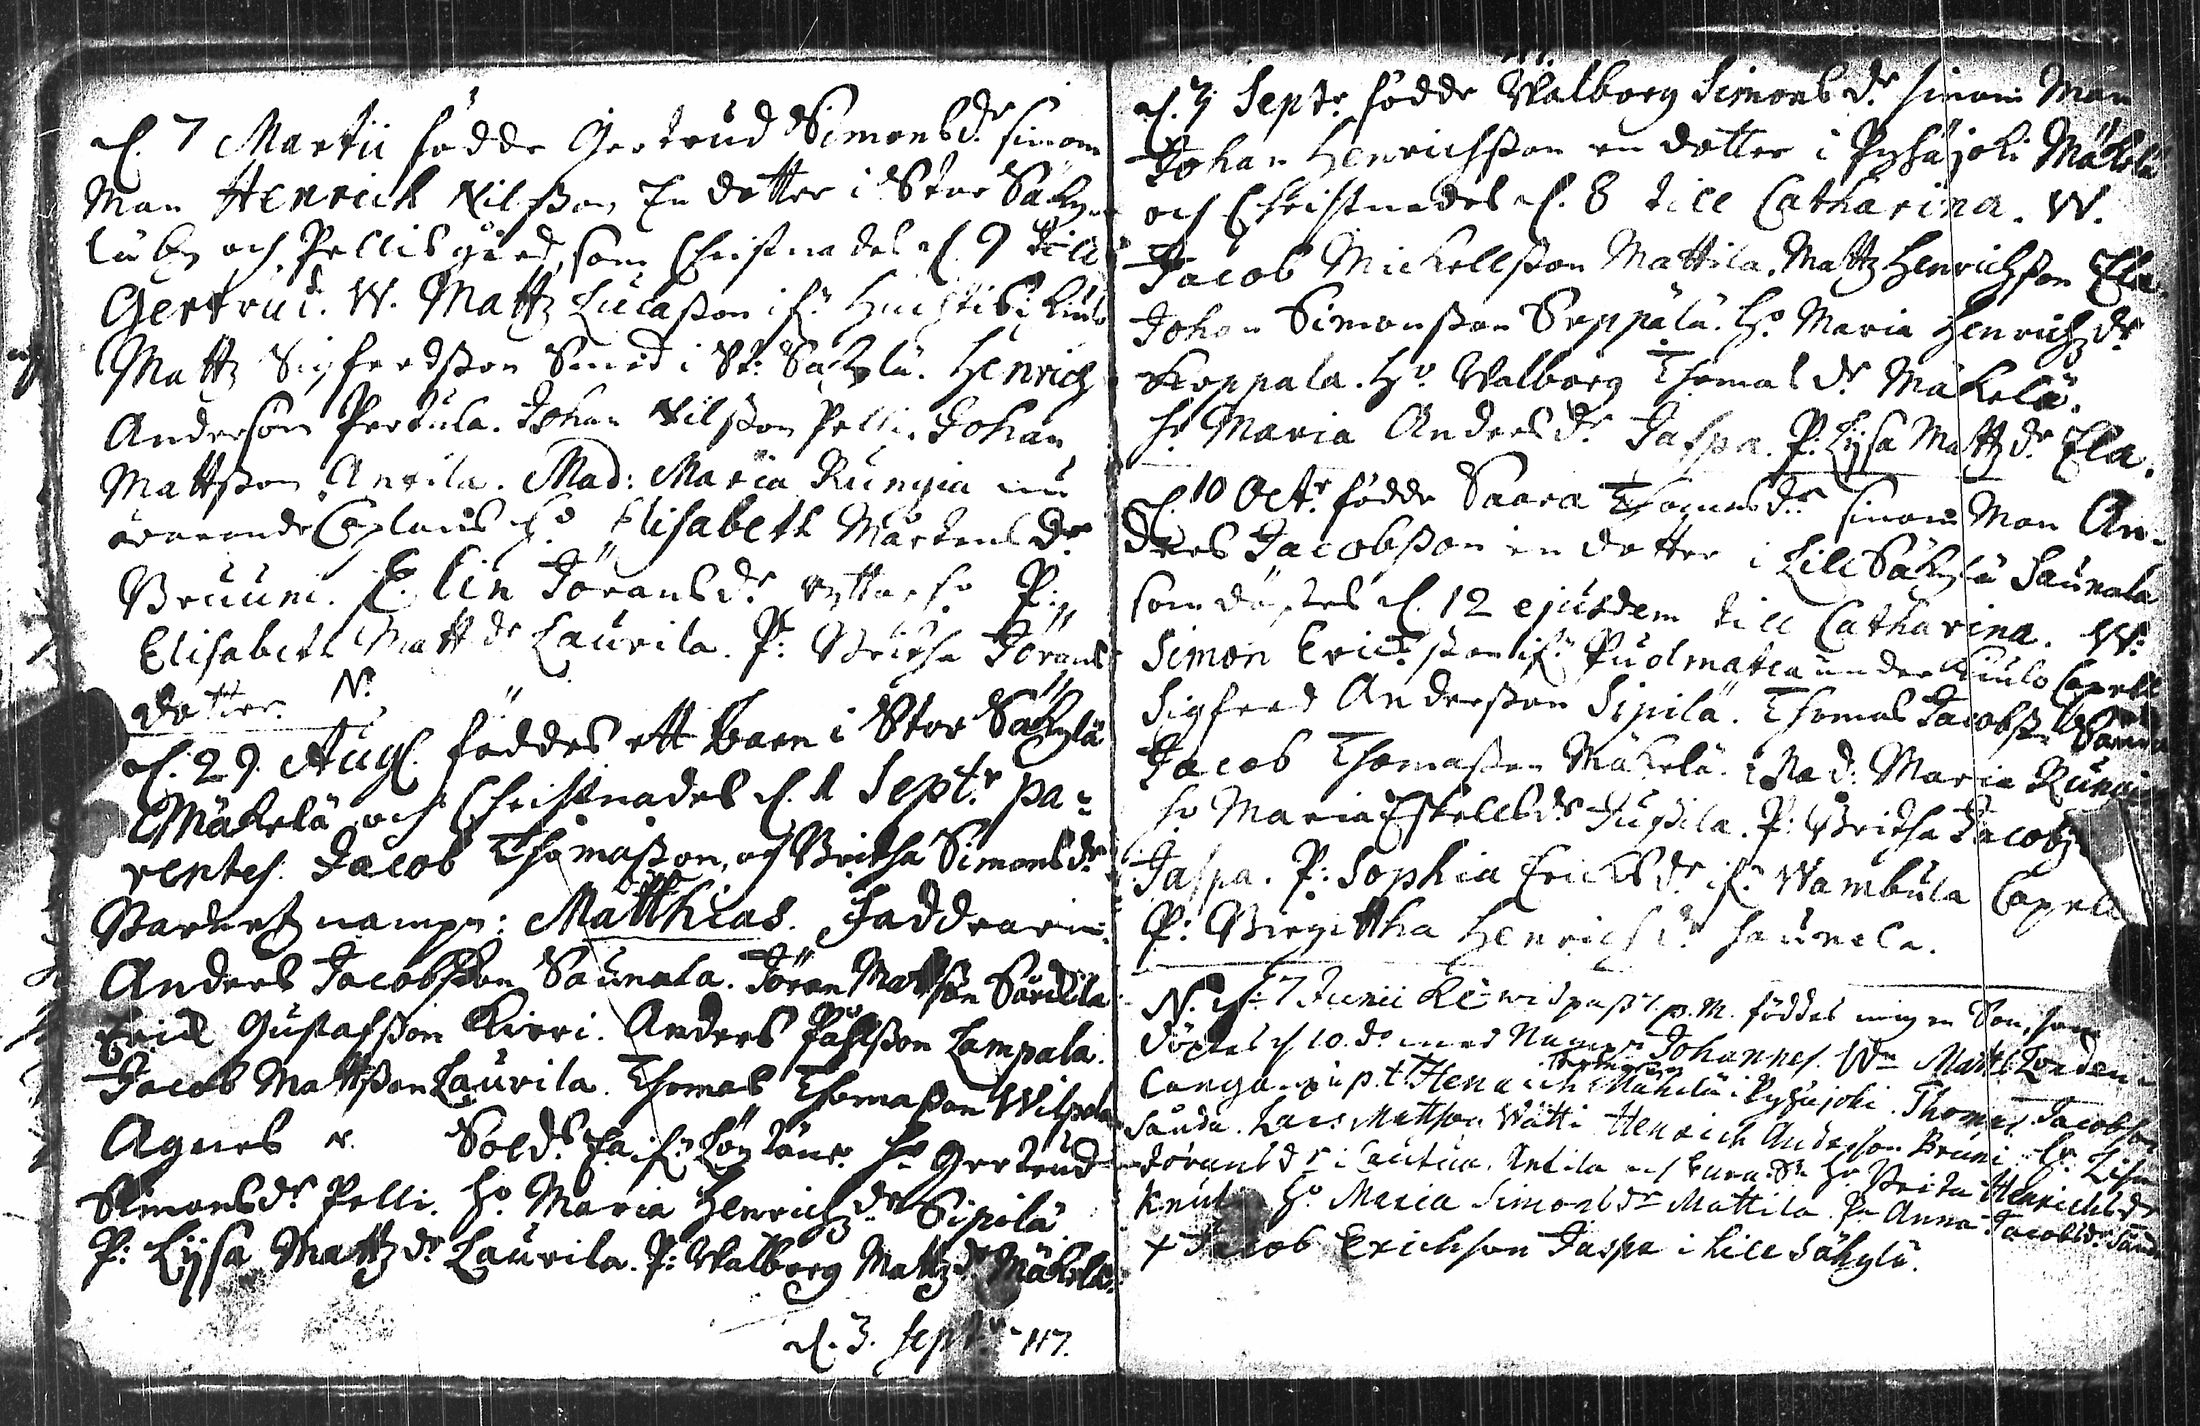 d. 7 Martii födde Gertrud Simonsdr sinom
Man Henrich Nilsson En dotter i Stor Säkÿ-
lä by och Pellis gård, som Christnades d. 9 till
Gertrud. W. Mattz Lucasson ifr. Huchtis i Kiulo
Mattz Sigfredsson Smed i St: Säkylä. Henrich
Anderson Pertula. Johan Nilsson Pelli. Johan
Mattsson Anvila. Mad: Maria Rungia nu
warande Caplans Ho Elisabeth Mårtensdr
Bruuni. Elin Jöransdr ryttar ho P:
Elisabeth Mattdr Laurila. P: Britha Jörans
dotter. N.
d. 29. Aug. föddes ett barn i Stor Säkylä
Mäkelä och Christnades d. 1 Septr. pa-
rentes. Jacob Thomasson, och Britha Simonsdr
Barnetz nampn: Matthias. Faddrarne.
Anders Jacobsson Saunala. Jöran Mattsson
Erich Gustafsson Kirri. Anders Påhlsson Lampala.
Jacob Mattsson Laurila. Thomas Thomasson
Agnes N. Sold. ifr. ho Gertrud
Simonsdr Pelli. ho Maria Henrichzdr Sipilä
P: Lÿsa Mattzdr Laurila. P: Walborg Mattzdr Mäkelä.
d. 3. septr
d. 3 Septr. födde Walborg Simonsdr. sinom Man
Johan Henrichsson en dotter i Pyhäjoki Mäkelä
och Christnades d. 8 till Catharina. W.
Jacob Mickellsson Mattila. Mattz Henrichsson Ela.
Johan Simonsson Seppälä. Ho Maria Henrichzdr
Koppala. Ho Walborg Thomasdr Mäkelä.
ho Maria Andersdr Jaspa. P: Lÿsa Mattzdr Ela.
d. 10 Octr. födde Saara Thomasdr sinom Man An-
ders Jacobsson en dotter i Lill Säkylä Saunala
som döptes d. 12 ejusdem till Catharina. W:
Simon Ericsson ifr Puolmatca under Kiulo Capell
Sigfred Andersson Sipilä. Thomas Jacobss.
Jacob Thomasson Mäkelä. Mad: Maria Rungia
ho Maria Eskellsdr Jussila. P: Britha Jacobz
Jaspa. P: Sophia Erichsdr ifr Wambula Capell
P: Birgittha Henrichsdr Saunala.
N. d. 7 Junii p.M. föddes min Son, som
döptes d 10. do med Nampn Johannes. Wn
Henrich Mäkelä i Pyhäjoki. Thomas Jacobson
Lars Mattson Henrich Anderson Bruni ho Lisa
Jöransdr i Antila Ho Brita Henrichsdr
ho Maria Simonsdr Mattila. Pn Anna Jacobsdr
+ Jacob Erichson Jaspa i Lill Säkylä.